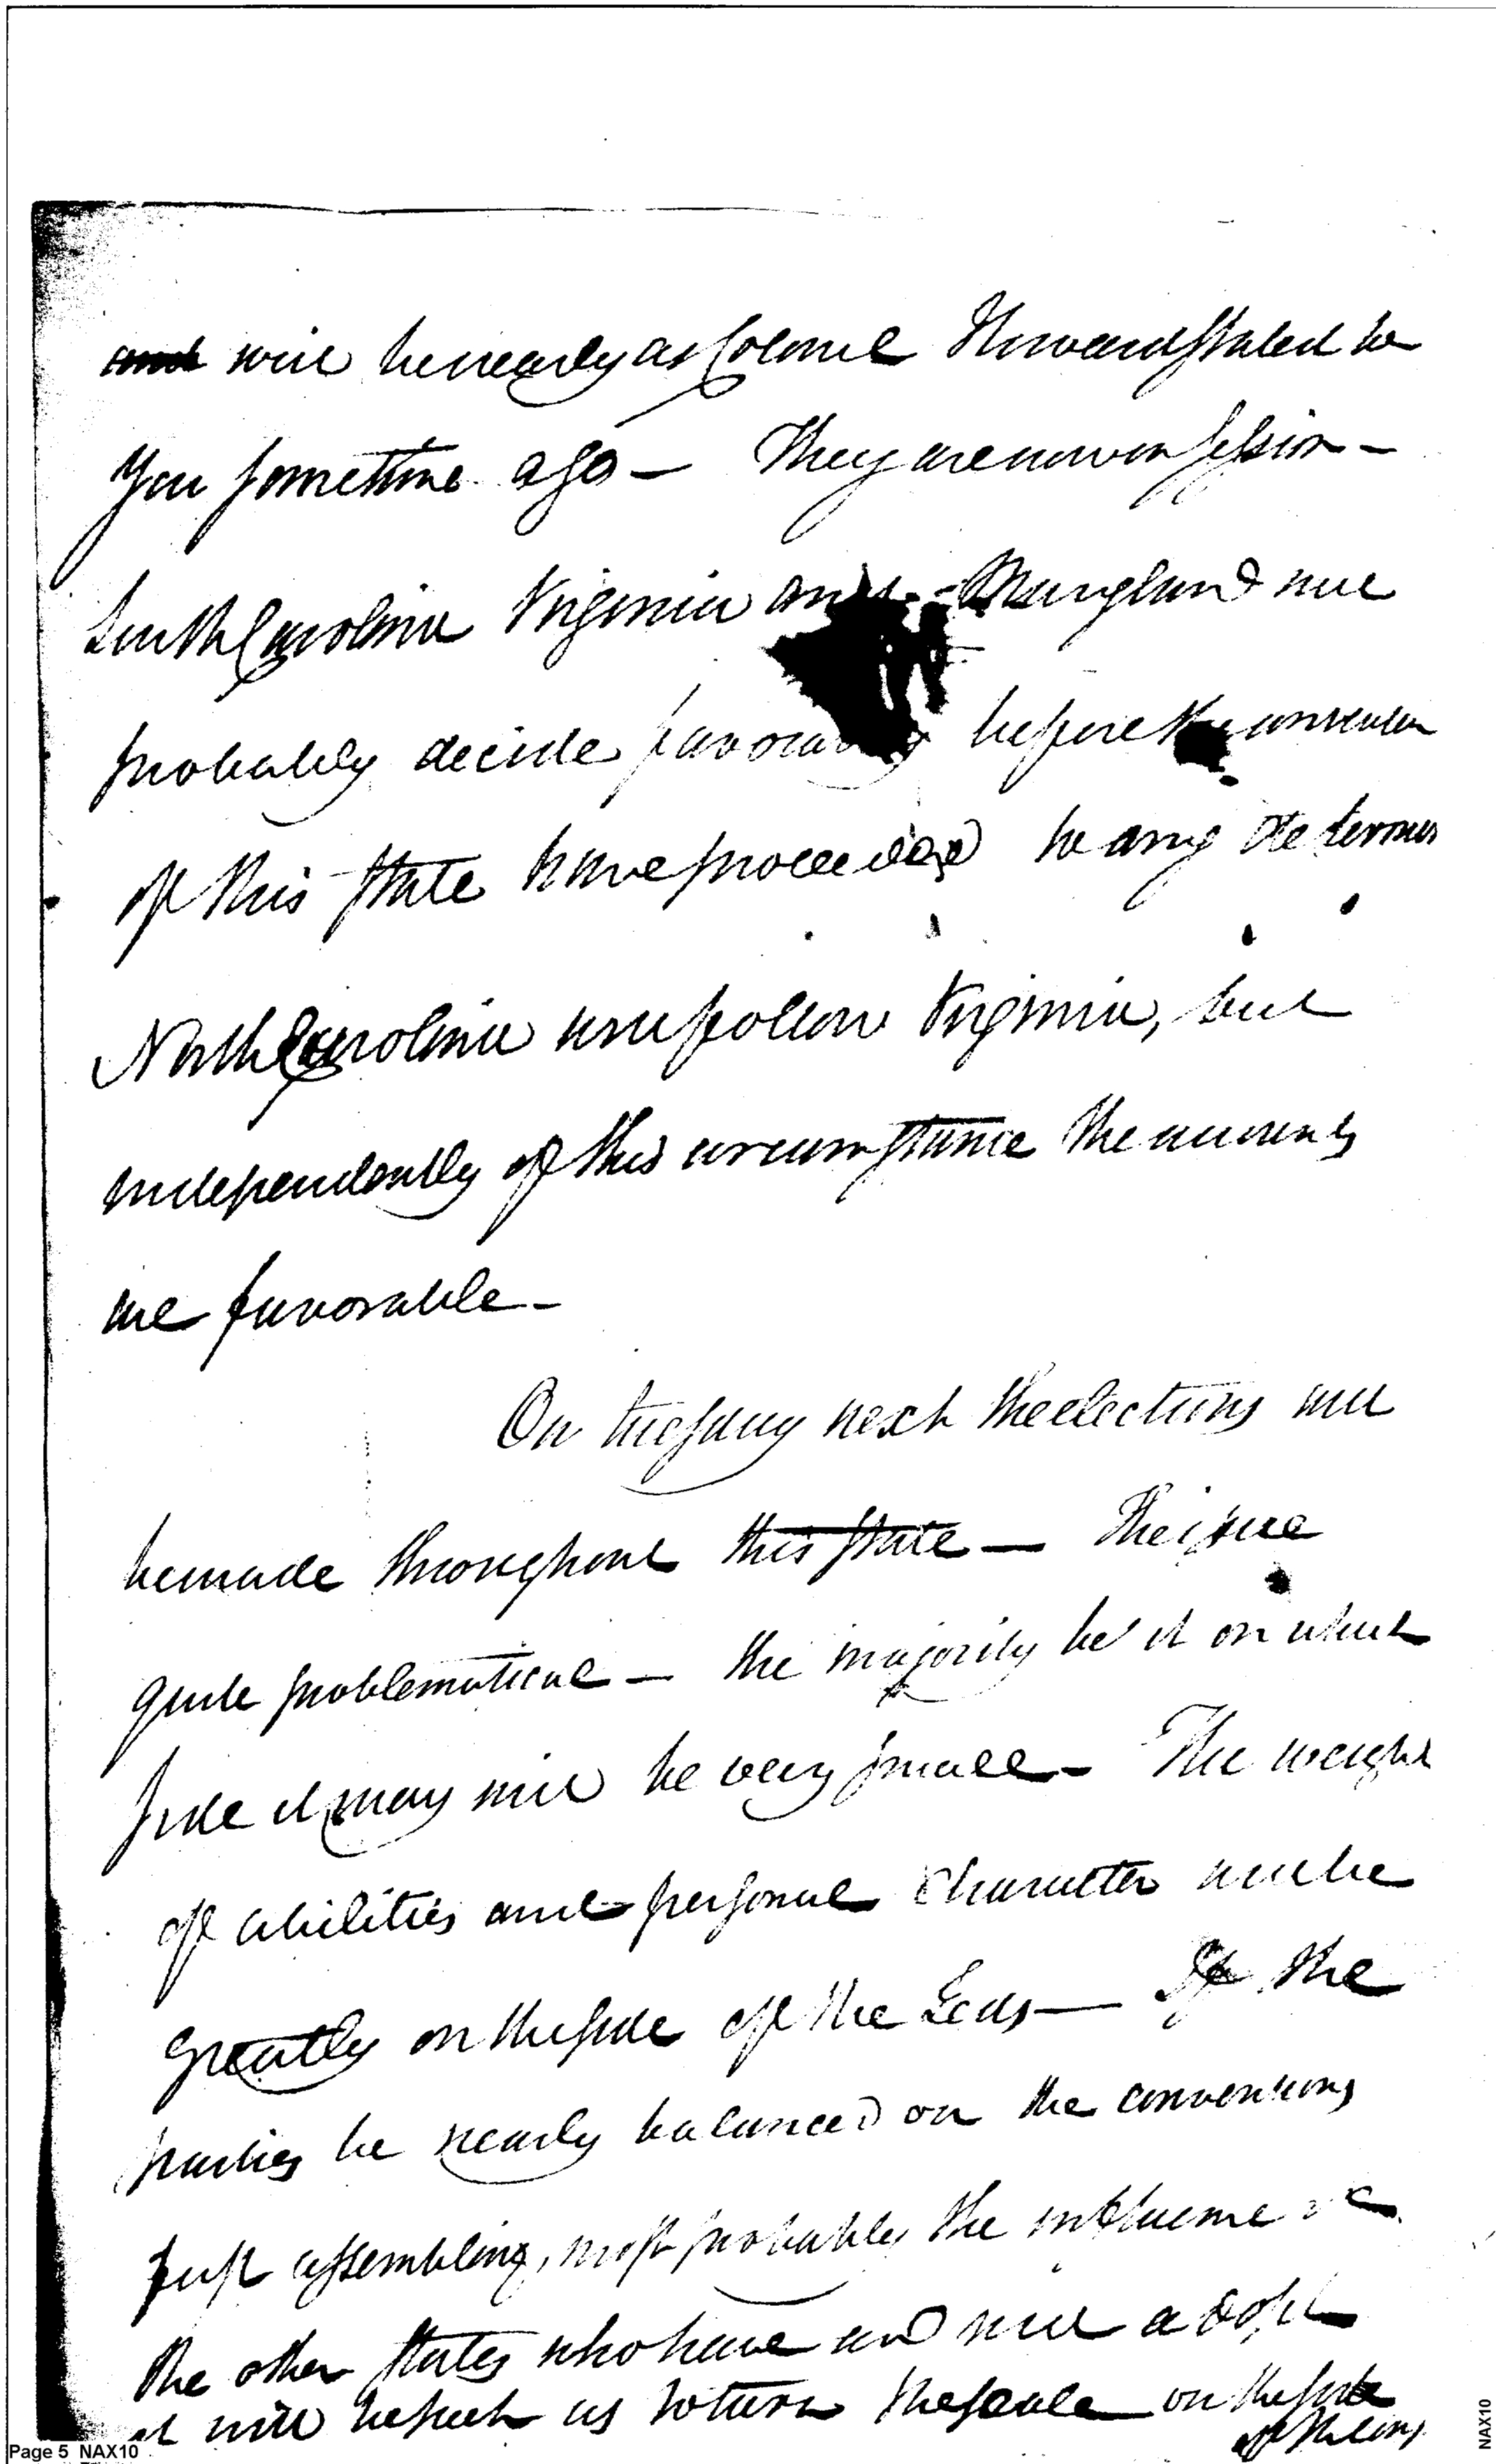 will be nearly as Colonel Howard stated to
you sometime ago — They are now in session —
South Carolina Virginia and Maryland will
probably decide favorably before the convention
of this state have proceeded to any determin
North Carolina will follow Virginia, but
independently of this circumstance the accounts
are favorable —
On tuesday next the elections will
be made throughout this state — The issue
quite problematical — the majority be it on which
side it may will be very small — The weight
of abilities and personal character will be
greatly on the side of the Feds — If the
parties be nearly balanced on the conventions
first assembling, most probably the influence
the other states who have and will adopt
it will be such as to turn the scale on the side
of the
Page 5 NAX10
NAX10